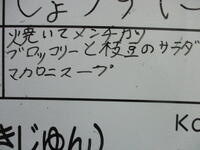 しょうりに
焼いてメンチカツ
ブロッコリーと枝豆のサラダ
マカロニスープ
Ko
きじゅん)